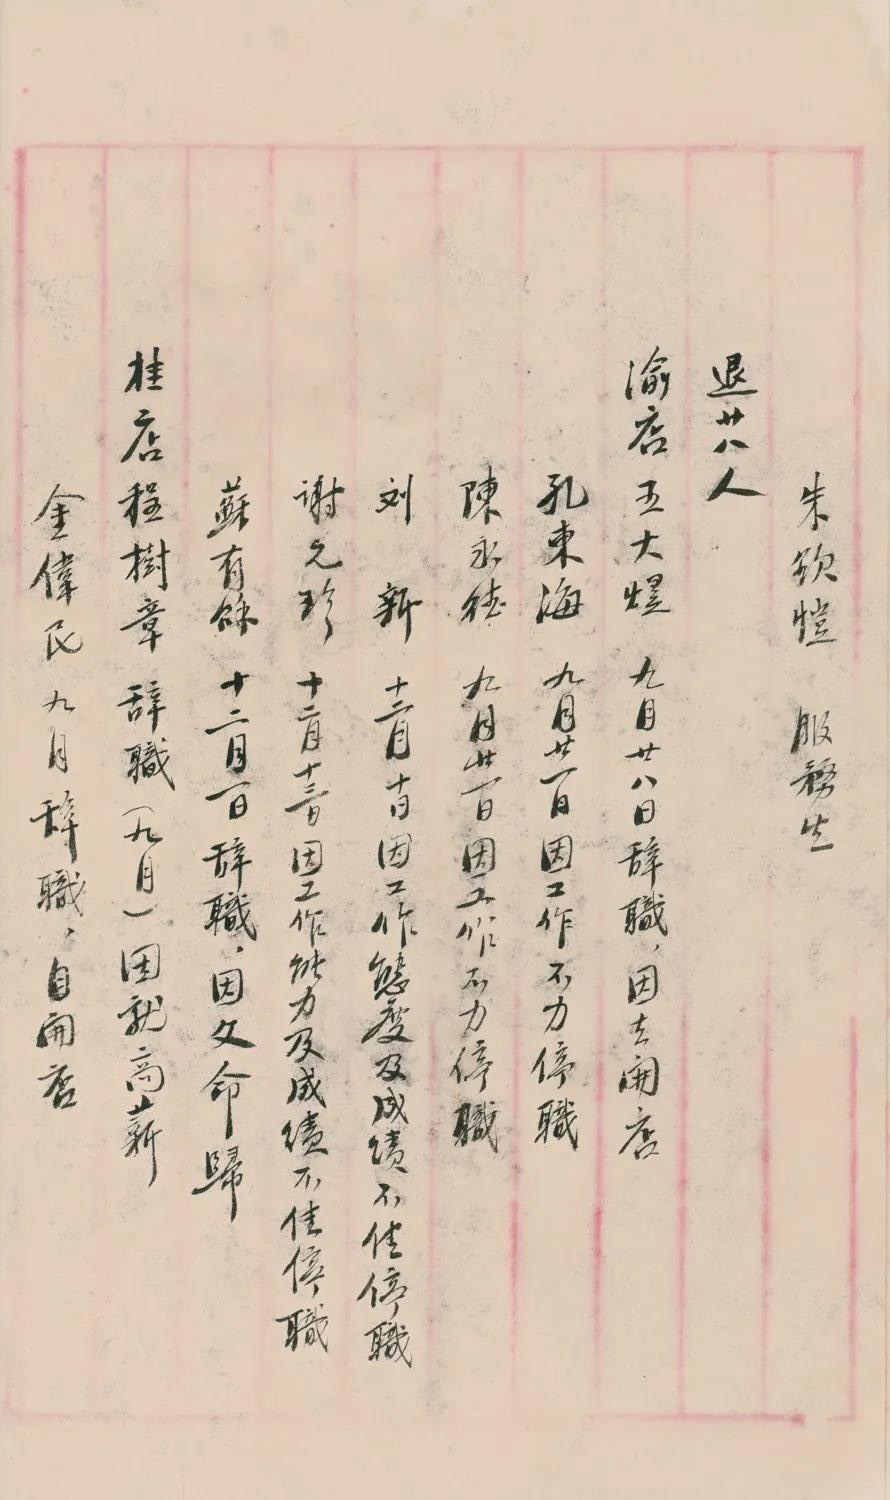 朱欽愷　服務生
退廿八人
渝店 王大煜 九月廿八日辞職，因去開店
孔東海 九月廿一日因工作不力停職
陳永德 九月廿一日因工作不力停職
刘新 十二月十日因工作態度及成績不佳停職
謝允珍 十二月十三日因工作能力及成績不佳停職
蘇有餘 十二月一日辞職，因父命歸
桂店 程樹章 辞職（九月）因就高薪
金偉民 九月辞職，自開店